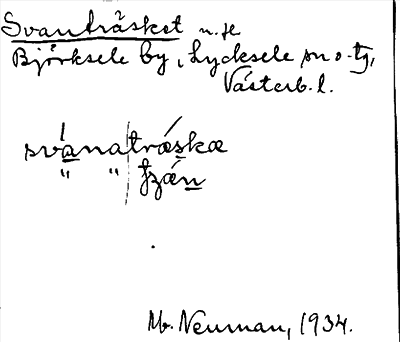 Svanträsket n. se
Björksele by, Lycksele sn o. tg,
Västerb. l.
svanatræskæ
" " tzán
M. Neuman, 1934.